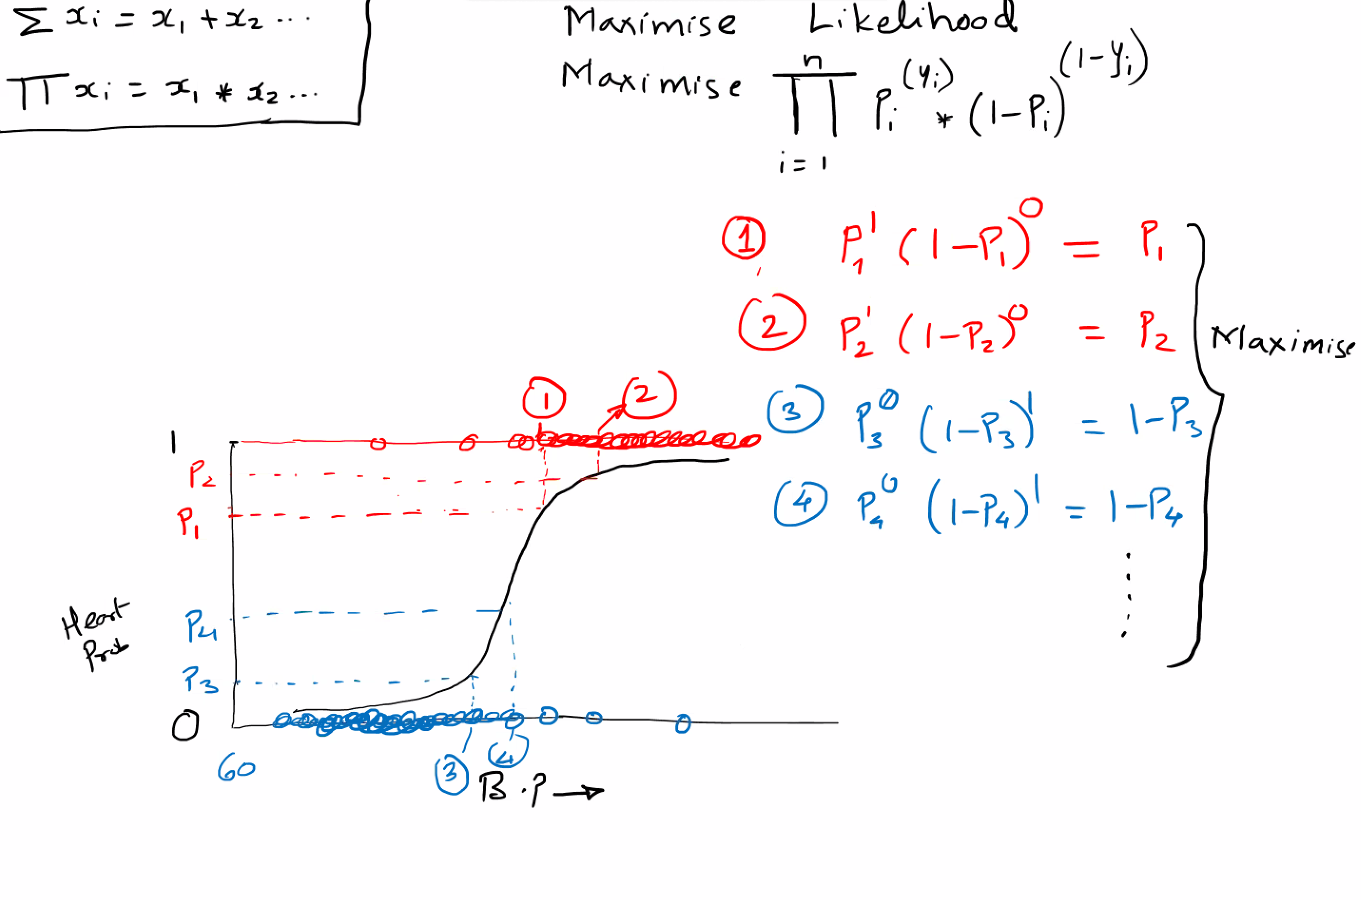 ∑ xi = x1 + x2 ...
∏ xi = x1 * x2 ...
Maximise Likelihood
Maximise ∏ i=1 n Pi^(yi) * (1-Pi)^(1-yi)
① P1^1 (1-P1)^0 = P1
② P2^1 (1-P2)^0 = P2
Maximise
③ P3^0 (1-P3)^1 = 1-P3
④ P4^0 (1-P4)^1 = 1-P4
① ②
1
P2
P1
Heart
Prob
P4
P3
0
60
③ ④
B.P →